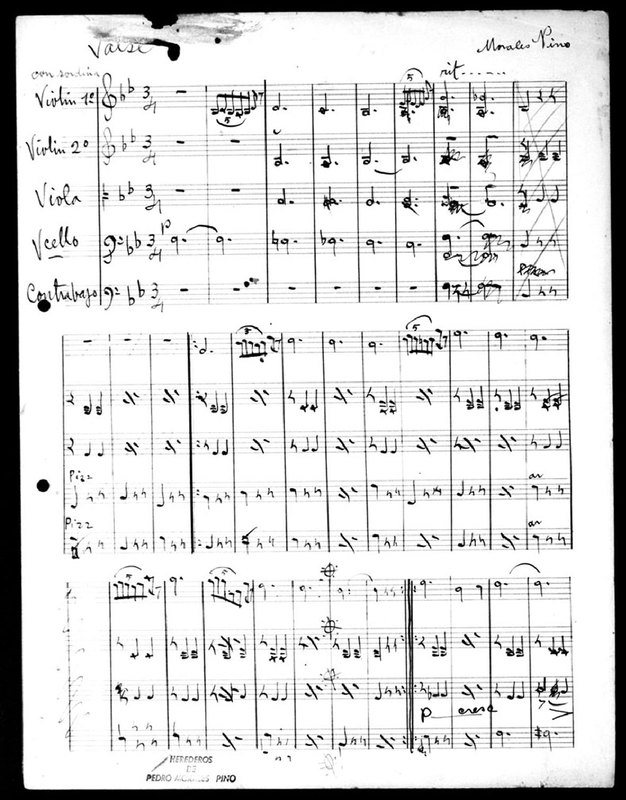 Valse
Morales Pino
con sordina
rit......
5
Violin 1º
5
Violin 2º
Viola
p
Vcello
Contrabajo
5
5
Pizz
ar
Pizz
ar
5
5
p cresc
HEREDEROS
DE
PEDRO MORALES PINO